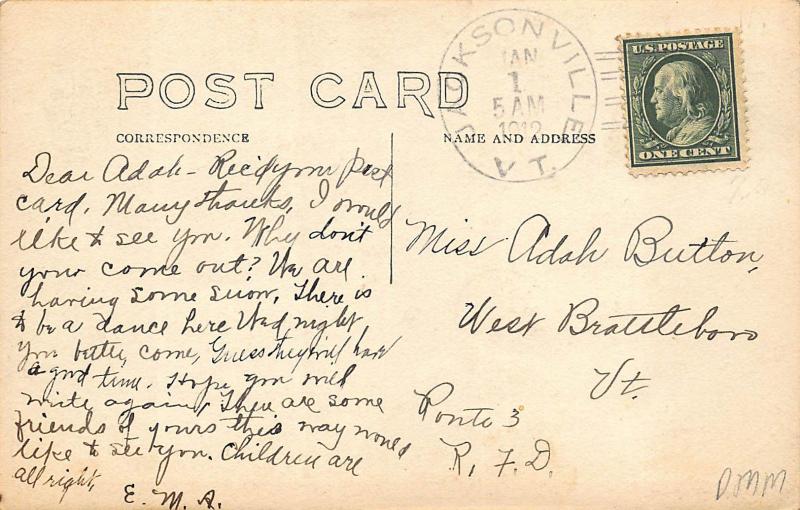 POST CARD
CORRESPONDENCE
NAME AND ADDRESS
JACKSONVILLE
JAN
1
5 AM
1912
VT.
U.S. POSTAGE
ONE CENT
Dear Adah - Rec'd your post
card. Many thanks. I would
like to see you. Why don't
your come out? We are
having some snow. There is
to be a dance here Wed, night
You better come, Guess they will have
a good time. Hope you will
write again, There are some
friends of yours this way would
like to see you. Children are
all right,
E. M. A.
Miss Adah Button,
West Brattleboro
Vt.
Route 3
R. F. D.
DMM